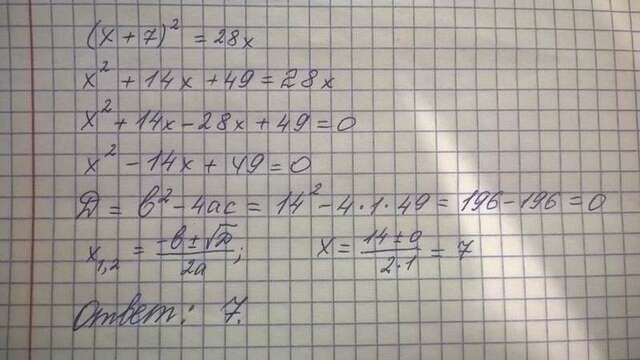 (x + 7)² = 28x
x² + 14x + 49 = 28x
x² + 14x - 28x + 49 = 0
x² - 14x + 49 = 0
D = b² - 4ac = 14² - 4 · 1 · 49 = 196 - 196 = 0
x₁,₂ = (-b ± √D)/(2a); x = (14 ± 0)/(2·1) = 7
Ответ: 7.